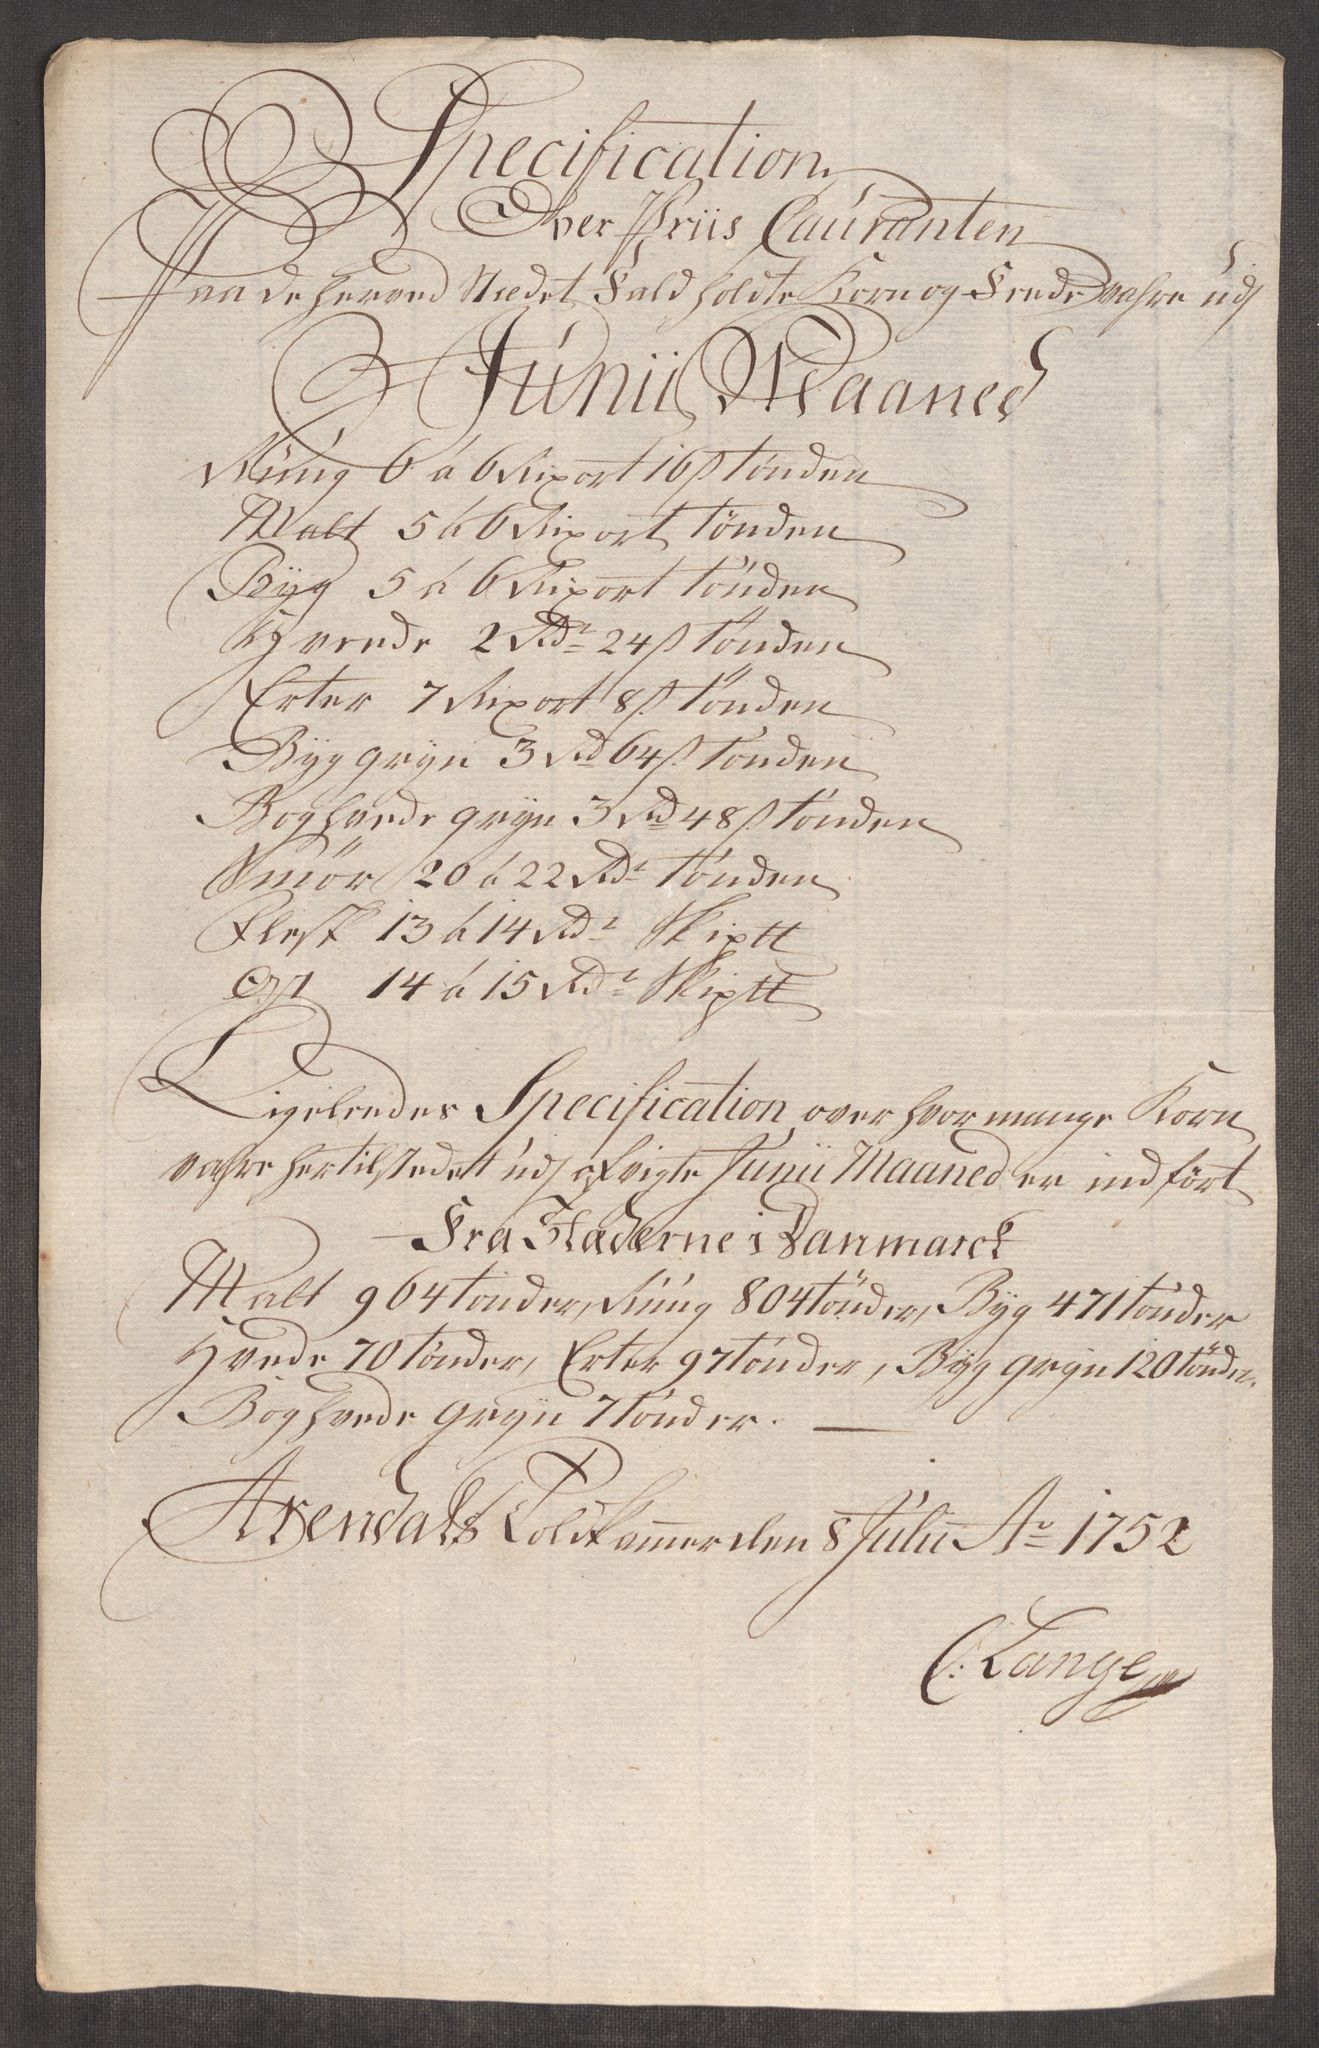 Specification
Over Priis Couranten
Paa de herved Stædet Fald holdte Korn og Fædevahre udj
Junii Maaned
Rúúg 6 á 6 Rixort 16 ß tønden
Malt 5 á 6 Rixort tønden
Byg 5 á 6 Rixort tønden
Hveede 2 Rdr 24 ß tønden
Erter 7 Rixort 8 ß tønden
Byg gryn 3 Rd 64 ß tønden
Boghvede gryn 3 Rd 48 ß tønden
Smør 20 á 22 Rdr tønden
Flesk 13 á 14 Rdr Skiptt
Ost 14 á 15 Rdr Skiptt
Ligeleedes Specification over hvor mange Korn
vahre her til stedet udj afvigte Junii Maaned er indført
Fra Stæderne i Danmarck
Malt 964 tønder, Rúúg 804 tønder, Byg 471 tønder
Hvede 70 tønder, Erter 97 tønder, Byg gryn 120 tønder
Boghvede gryn 7 tønder.
Arendals Toldkammer den 8 Julii Ao 1752
C: Lange